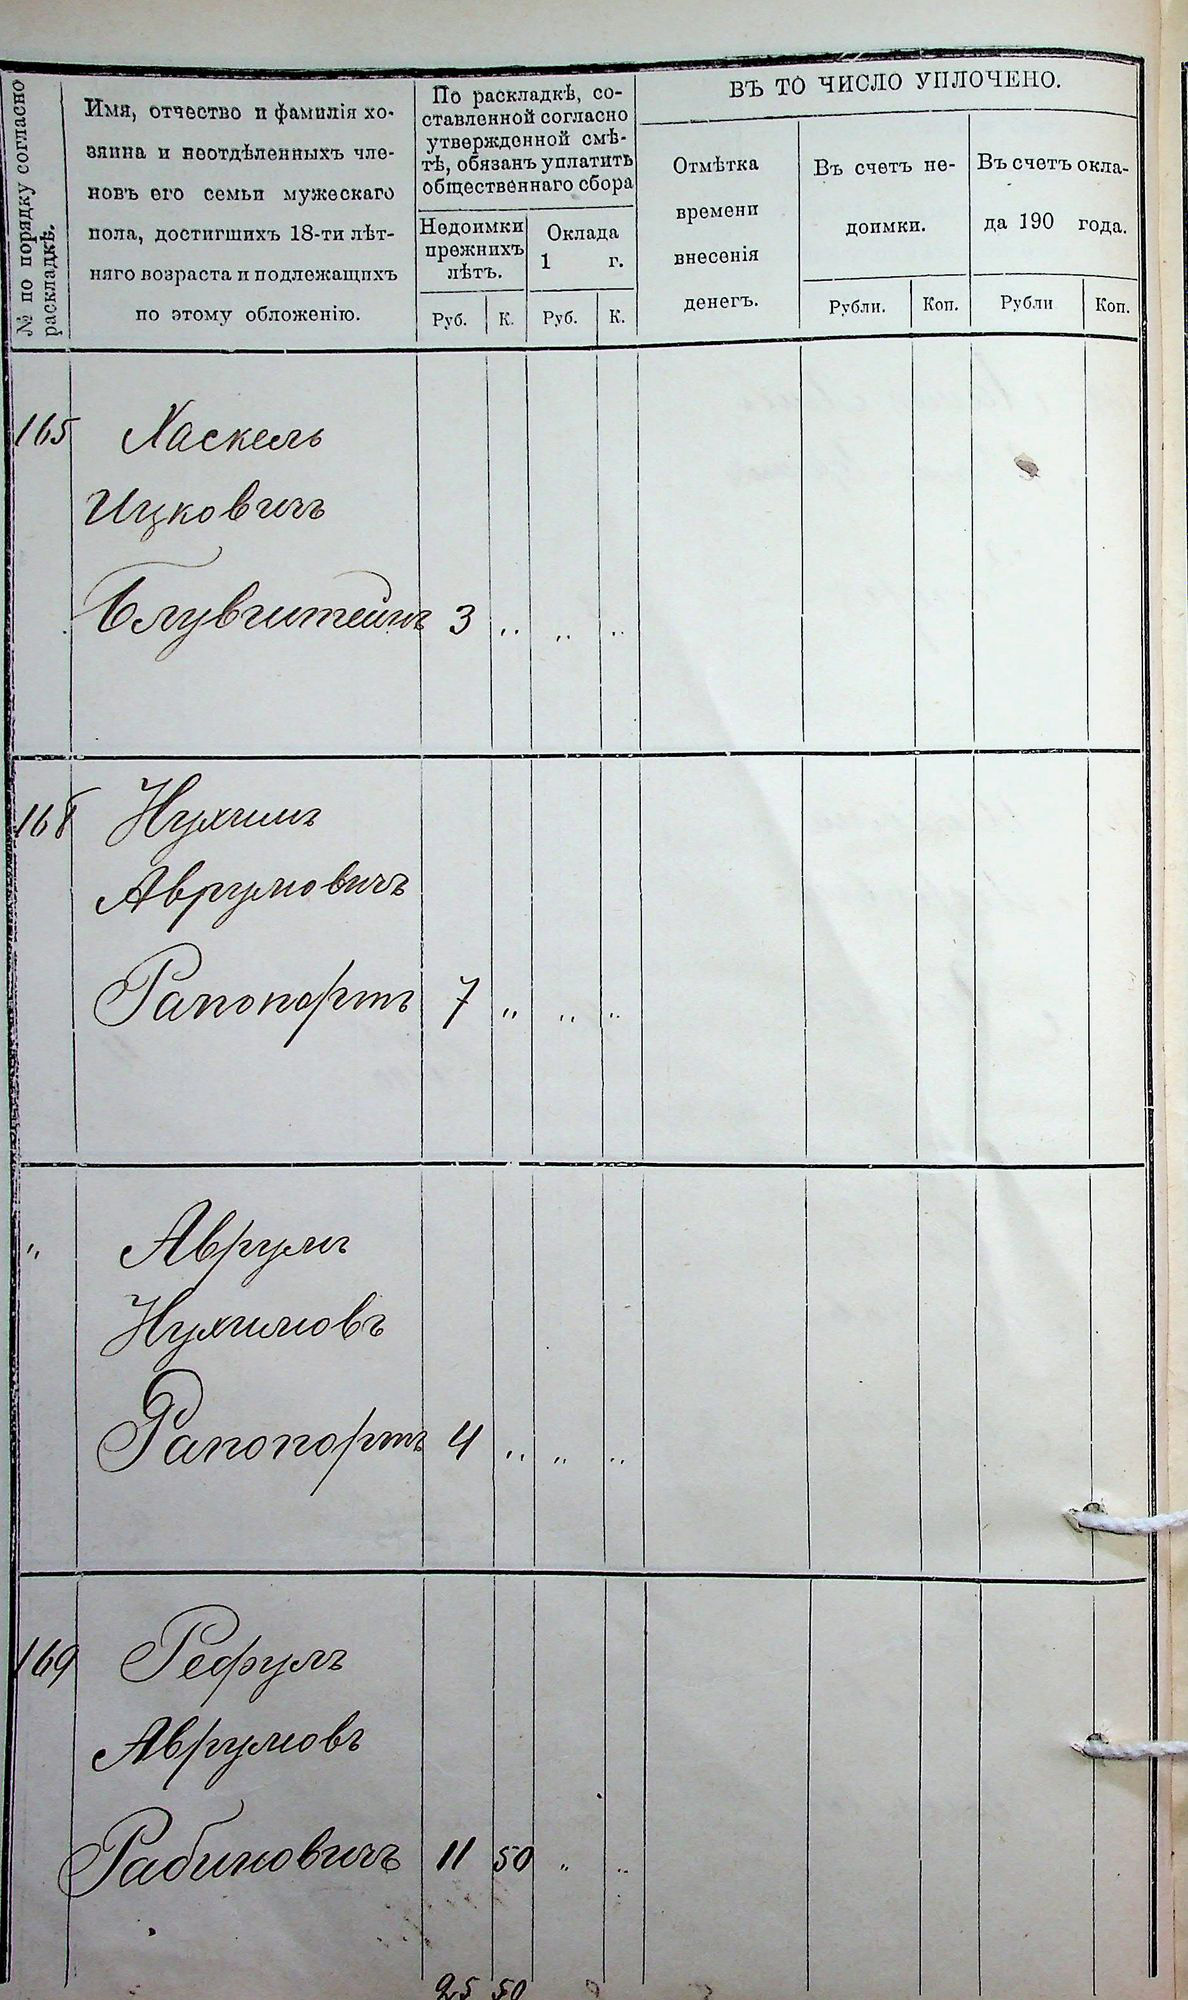 № по порядку согласно
раскладкѣ.
Имя, отчество и фамилія хо-
зяина и неотдѣленныхъ чле-
новъ его семьи мужескаго
пола, достигшихъ 18-ти лѣт-
няго возраста и подлежащихъ
по этому обложенію.
По раскладкѣ, со-
ставленной согласно
утвержденной смѣ-
тѣ, обязанъ уплатить
общественнаго сбора
Недоимки
прежнихъ
лѣтъ.
Руб. К.
Оклада
1 г.
Руб. К.
ВЪ ТО ЧИСЛО УПЛОЧЕНО.
Отмѣтка
времени
внесенія
денегъ.
Въ счетъ не-
доимки.
Рубли. Коп.
Въ счетъ окла-
да 190 года.
Рубли Коп.
165 Хаскель
Ицковичъ
Блувштейнъ 3 " " "
168 Нухимъ
Аврумовичъ
Рапопортъ 7 " " "
" Аврумъ
Нухимовъ
Рапопортъ 4 " " "
169 Рефулъ
Аврумовъ
Рабиновичъ 11 50 " "
25 50